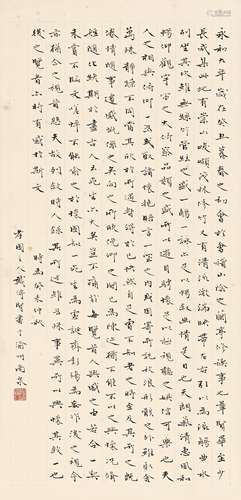 永和九年歲在癸丑暮春之初會於會稽山陰之蘭亭脩禊事也羣賢畢至少
長咸集此地有崇山峻領茂林脩竹又有清流激湍映帶左右引以為流觴曲水
列坐其次雖無絲竹管弦之盛一觴一詠亦足以暢敘幽情是日也天朗氣清惠風和
暢仰觀宇宙之大俯察品類之盛所以遊目騁懷足以極視聽之娛信可樂也夫
人之相與俯仰一世或取諸懷抱悟言一室之內或因寄所託放浪形骸之外雖趣舍
萬殊靜躁不同當其欣於所遇暫得於己快然自足不知老之將至及其所之既
惓情隨事遷感慨係之矣向之所欣俛仰之間已為陳迹猶不能不以之興懷況脩
短隨化終期於盡古人云死生亦大矣豈不痛哉每覽昔人興感之由若合一契
未嘗不臨文嗟悼不能喻之於懷固知一死生為虛誕齊彭殤為妄作後之視今
亦猶今之視昔悲夫故列敘時人錄其所述雖世殊事異所以興懷其致一也
後之覽者亦將有感於斯文
時為癸未仲秋
孝園主人戴傳賢書於渝州南泉